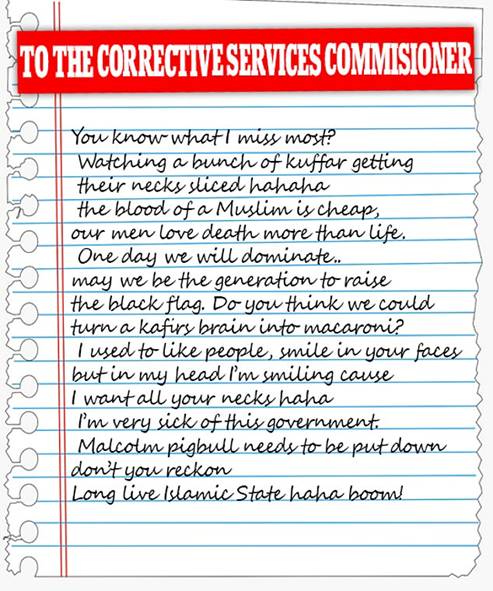 TO THE CORRECTIVE SERVICES COMMISIONER
You know what I miss most?
Watching a bunch of kuffar getting
their necks sliced hahaha
the blood of a Muslim is cheap,
our men love death more than life.
One day we will dominate..
may we be the generation to raise
the black flag. Do you think we could
turn a kafirs brain into macaroni?
I used to like people, smile in your faces
but in my head I'm smiling cause
I want all your necks haha
I'm very sick of this government.
Malcolm pigbull needs to be put down
don't you reckon
Long live Islamic State haha boom!